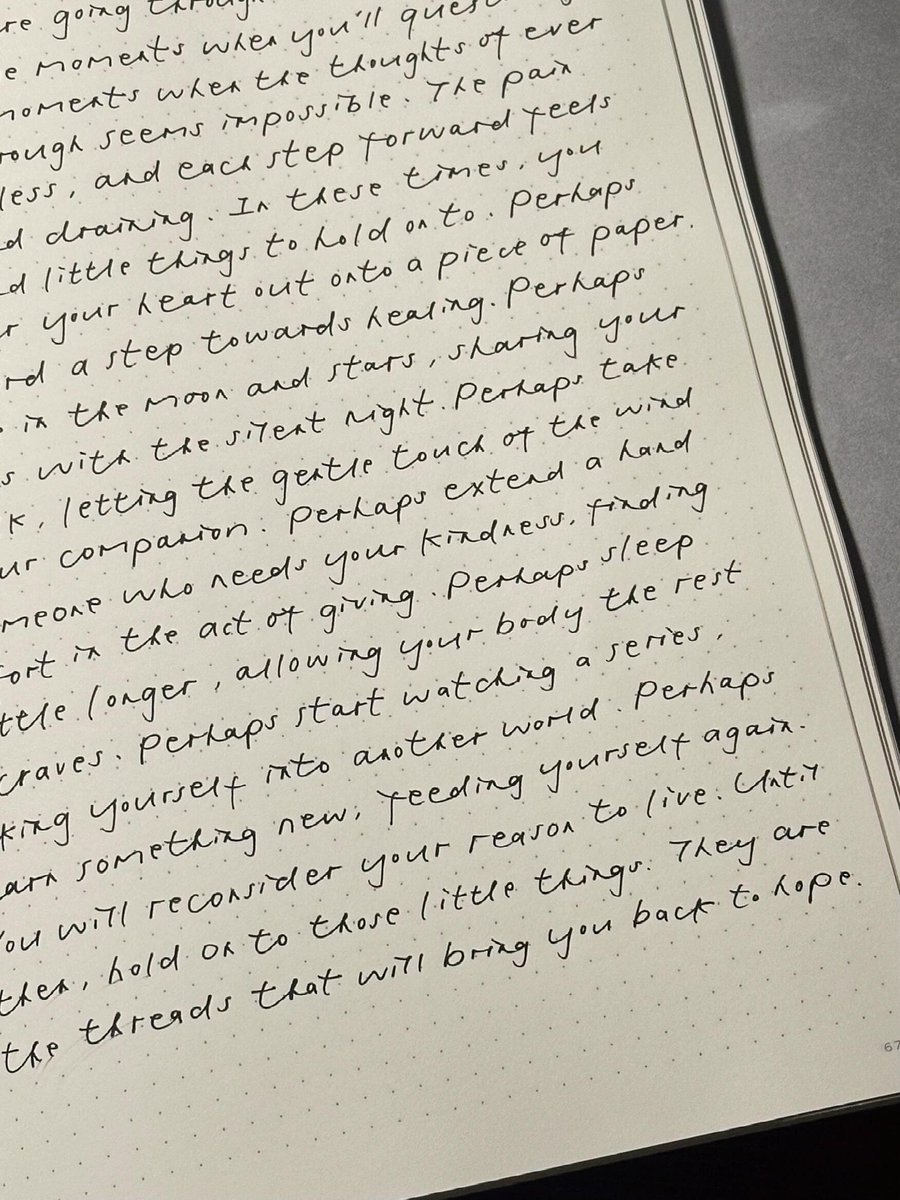 re going through
e moments when you'll ques
moments when the thoughts of ever
rough seems impossible. The pain
less, and each step forward feels
d draining. In these times, you
d little things to hold on to. Perhaps
r your heart out onto a piece of paper.
rd a step towards healing. Perhaps
in the moon and stars, sharing your
s with the silent night. Perhaps take
k, letting the gentle touch of the wind
ur companion. Perhaps extend a hand
meone who needs your kindness, finding
fort in the act of giving. Perhaps sleep
ttle longer, allowing your body the rest
craves. Perhaps start watching a series,
king yourself into another world. Perhaps
arn something new, feeding yourself again.
You will reconsider your reason to live. Until
then, hold on to those little things. They are
the threads that will bring you back to hope.
67